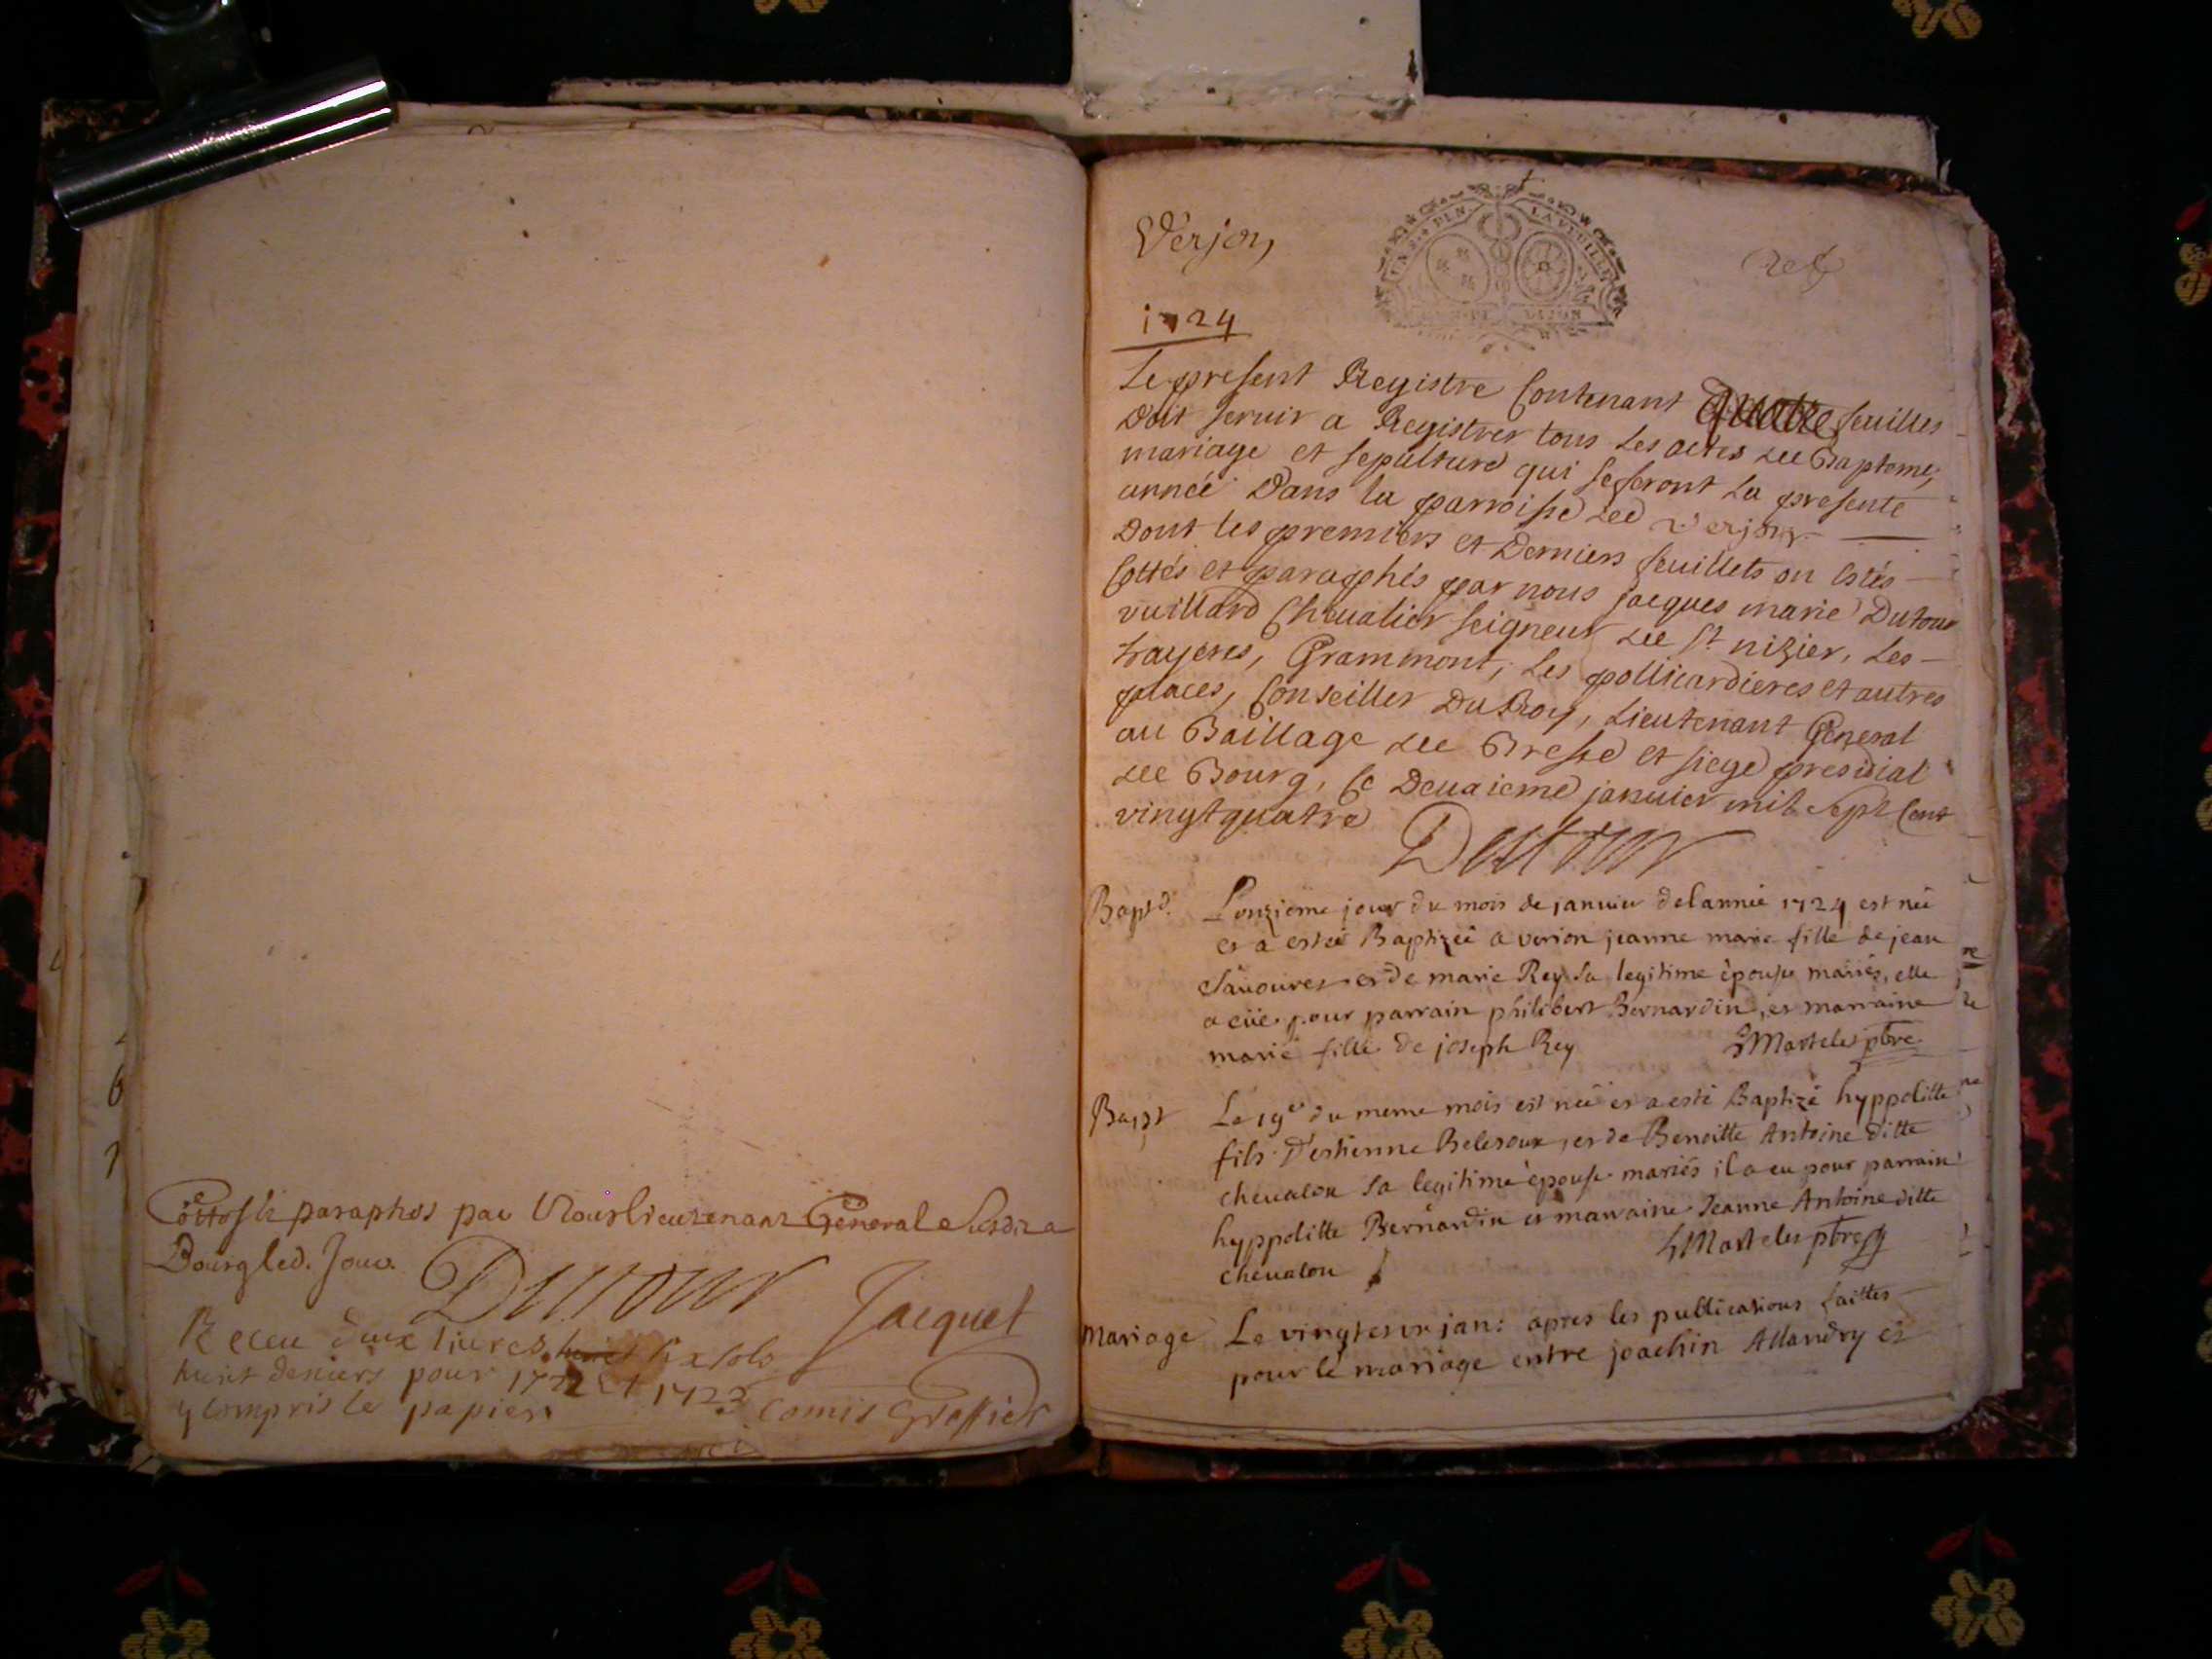 paraphés par Nous Lieutenant Général
Bourg led. Jour.
Dutour
Jacquet
Receu deux livres six sols
huit deniers pour 1722 et 1723
y compris le papier. Comis Greffier
Verjon
1724
Le present Registre Contenant quatre feuilles
Doit servir a Registrer tous Les actes de Bapteme,
mariage et sepulture qui seferont La presente
année Dans la parroisse de Verjon
Dont les premiers et Derniers feuillets on Estés
Cottés et paraphés par nous jacques marie Dutour
vuillard Chevalier seigneur de St nizier, Les
trayeres, Grammont, Les pollicardieres et autres
places, Conseiller Du Roy, Lieutenant General
au Baillage de Bresse et siege presidial
de Bourg, Ce Deuxieme janvier mil sept Cent
vingt quatre
Dutour
Bapt. L'onzieme jour du mois de janvier de l'année 1724 est née
et a estée Baptizée a verion jeanne marie fille de jean
et de marie Rey sa legitime épouse mariés, elle
a eüe pour parrain philibert Bernardin, et marraine
marie fille de joseph Rey
Bapt Le 19e du meme mois est né et a esté Baptizé hyppolitte
fils D'estienne et de Benoitte Antoine ditte
chevalon sa legitime épouse mariés il a eu pour parrain
hyppolitte Bernardin et marraine Jeanne Antoine ditte
chevalon
Mariage Le vingt et un jan: apres les publications faittes
pour le mariage entre joachin Allandry et